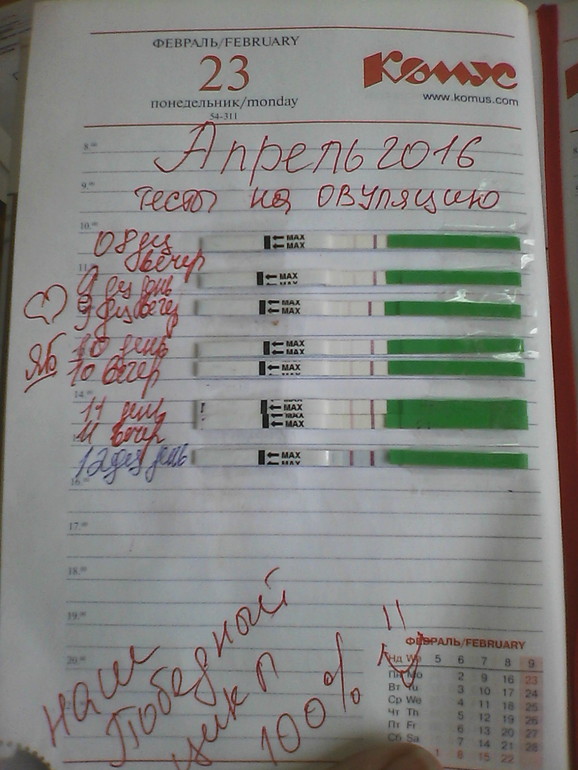 ФЕВРАЛЬ/FEBRUARY
23
понедельник/monday
54-311
Комус
www.komus.com
8.00
Апрель 2016
9.00
тесты на овуляцию
10.00
08 дц
вечер
MAX
MAX
11
9 дц день
MAX
9 дц вечер
MAX
MAX
ЯБ
10 день
MAX
10 вечер
MAX
14.00
11 день
MAX
11 вечер
MAX
12 дц день
MAX
MAX
16.00
17.00
18.00
19.00
20.00
наш
Победный
цикл
100%
!!
ФЕВРАЛЬ/FEBRUARY
Нд We 5 6 7 8 9
Пн Mo 2 9 16 23
Вт Tu 3 10 17 24
Ср We 4 11 18 25
Чт Th 5 12 19 26
Пт Fr 6 13 20 27
Сб Sa 7 14 21 28
1 8 15 22